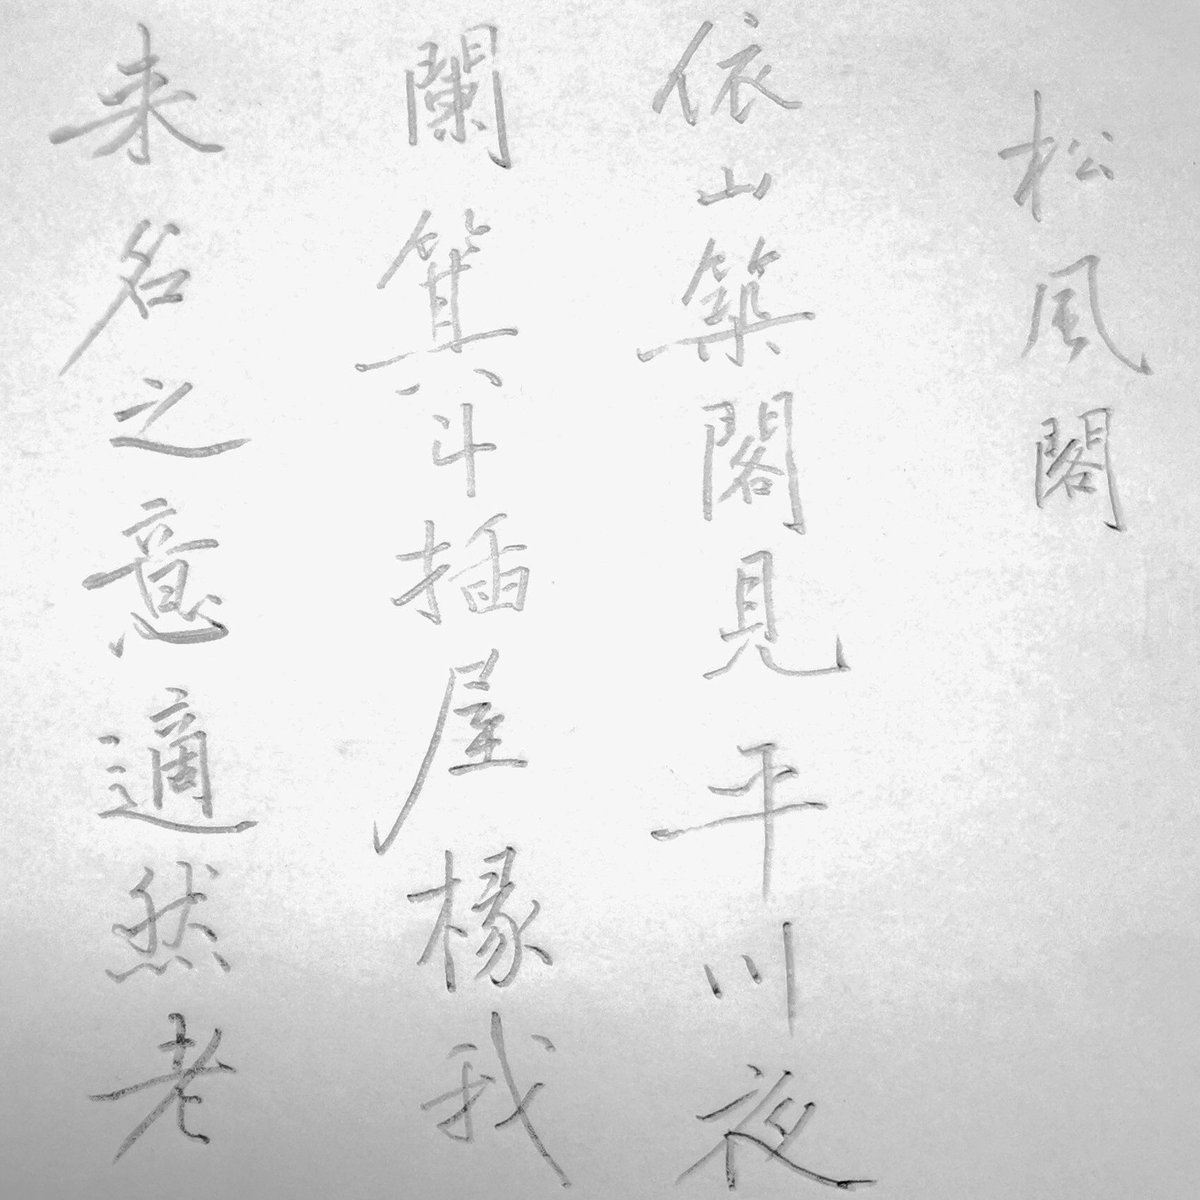 松風閣
依山築閣見平川夜
闌箕斗插屋椽我
来名之意適然老